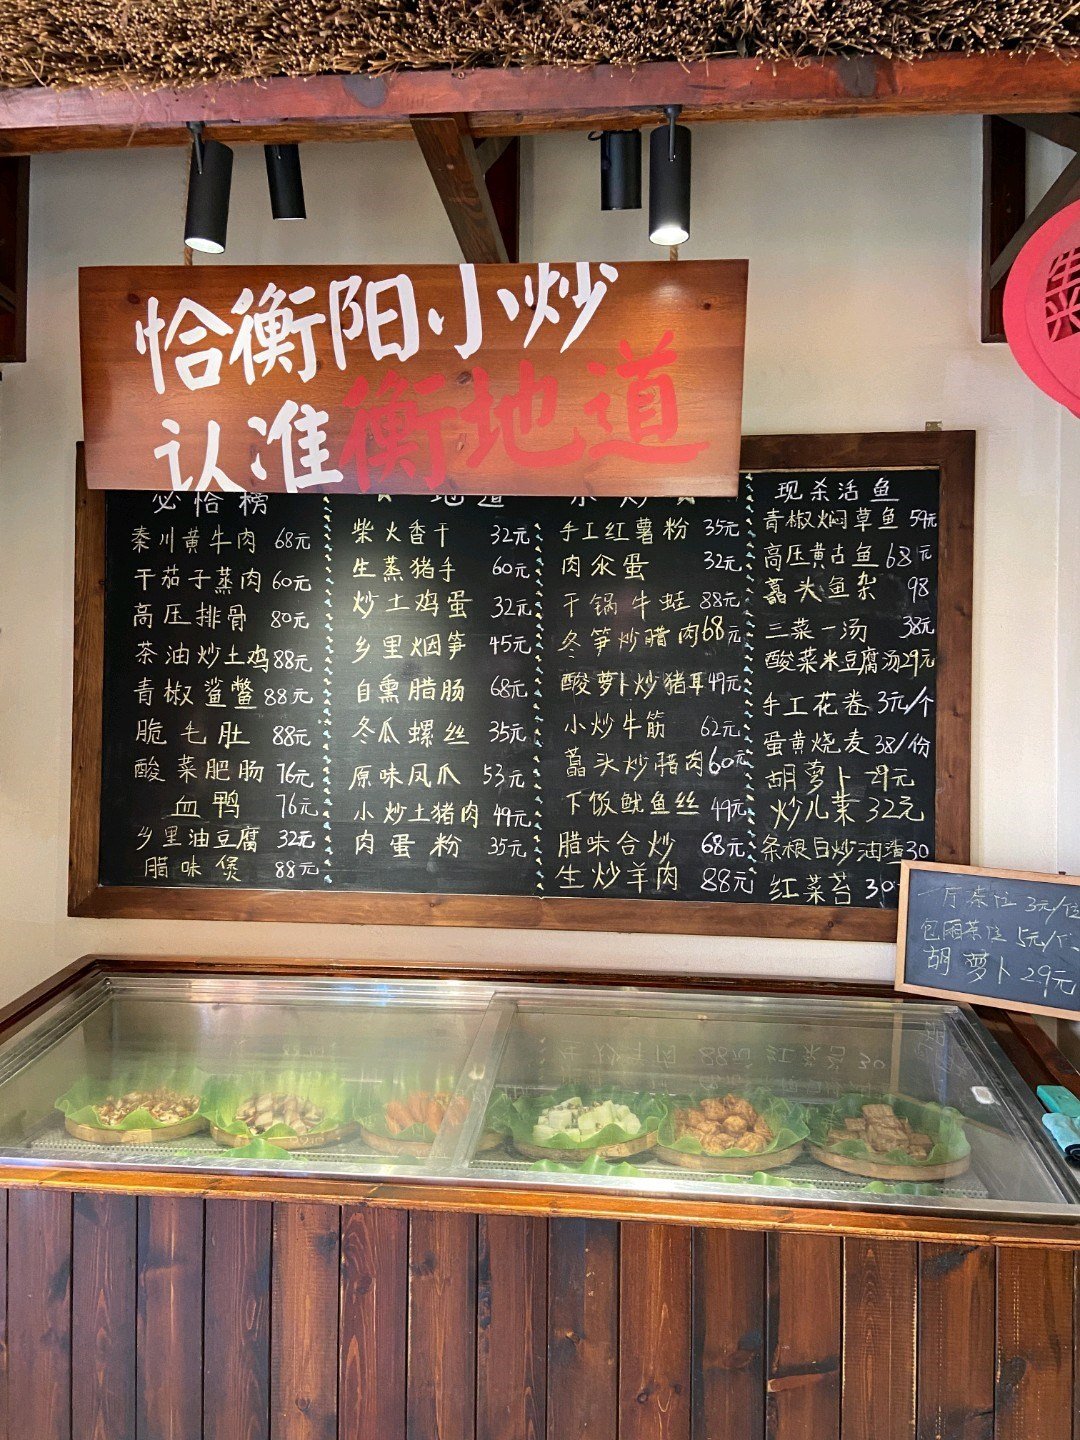 恰衡阳小炒
认准衡地道
必恰榜
秦川黄牛肉 68元
干茄子蒸肉 60元
高压排骨 80元
茶油炒土鸡 88元
青椒鲨鳖 88元
脆毛肚 88元
酸菜肥肠 76元
血鸭 76元
乡里油豆腐 32元
腊味煲 88元
地道
柴火香干 32元
生蒸猪手 60元
炒土鸡蛋 32元
乡里烟笋 45元
自熏腊肠 68元
冬瓜螺丝 35元
原味凤爪 53元
小炒土猪肉 49元
肉蛋粉 35元
小炒
手工红薯粉 35元
肉汆蛋 32元
干锅牛蛙 88元
冬笋炒腊肉 68元
酸萝卜炒猪耳 49元
小炒牛筋 62元
藠头炒腊肉 60元
下饭鱿鱼丝 49元
腊味合炒 68元
生炒羊肉 88元
现杀活鱼
青椒焖草鱼 59元
高压黄占鱼 68元
藠头鱼杂 98
三菜一汤 38元
酸菜米豆腐汤 29元
手工花卷 3元/个
蛋黄烧麦 38/份
胡萝卜 29元
炒儿菜 32元
条根自炒油渣 30
红菜苔 30
厅茶位 3元/位
包厢茶位 5元/个
胡萝卜 29元